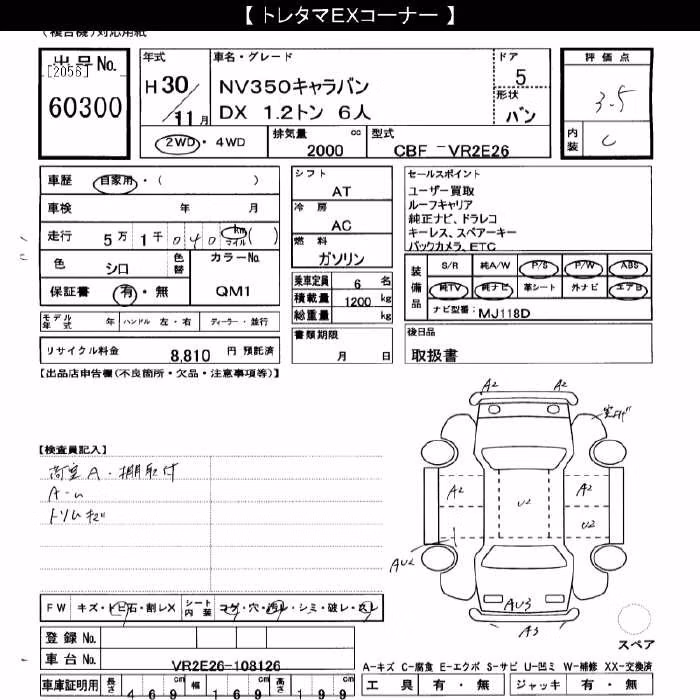 【 トレタマEXコーナー 】
(複合機)対応用紙
出品No.
[2056]
60300
年式
H30/11月
車名・グレード
NV350キャラバン
DX 1.2トン 6人
ドア
5
形状
バン
評価点
3.5
内装
C
2WD・4WD
排気量 cc
2000
型式
CBF-VR2E26
車歴 自家用・( )
車検 年 月
走行 5万1千040 km マイル ( )
色 シロ 色替
カラーNo.
QM1
保証書 有・無
モデル年式 年 ハンドル 左・右 ディーラー・並行
リサイクル料金 8,810 円 預託済
シフト
AT
冷房
AC
燃料
ガソリン
乗車定員 6 名
積載量 1200 kg
総重量 kg
書類期限
月 日
セールスポイント
ユーザー買取
ルーフキャリア
純正ナビ、ドラレコ
キーレス、スペアーキー
バックカメラ、ETC
装備品
S/R 純A/W P/S P/W ABS
純TV 純ナビ 革シート 外ナビ エアB
ナビ型番: MJ118D
後日品
取扱書
【出品店申告欄(不良箇所・欠品・注意事項等)】
【検査員記入】
荷室A・棚取付
A-U
トリムキズ
A2 A2
A2 U2 A2
U2
AU2
AU3
A3
スペア
FW キズ・トビ石・割レX シート内装 コゲ・穴・汚レ・シミ・破レ・スレ
登録No.
車台No. VR2E26-108126
車庫証明用 長さ 469 cm 幅 169 cm 高さ 199 cm
A-キズ C-腐食 E-エクボ S-サビ U-凹ミ W-補修 XX-交換済
工具 有・無 ジャッキ 有・無